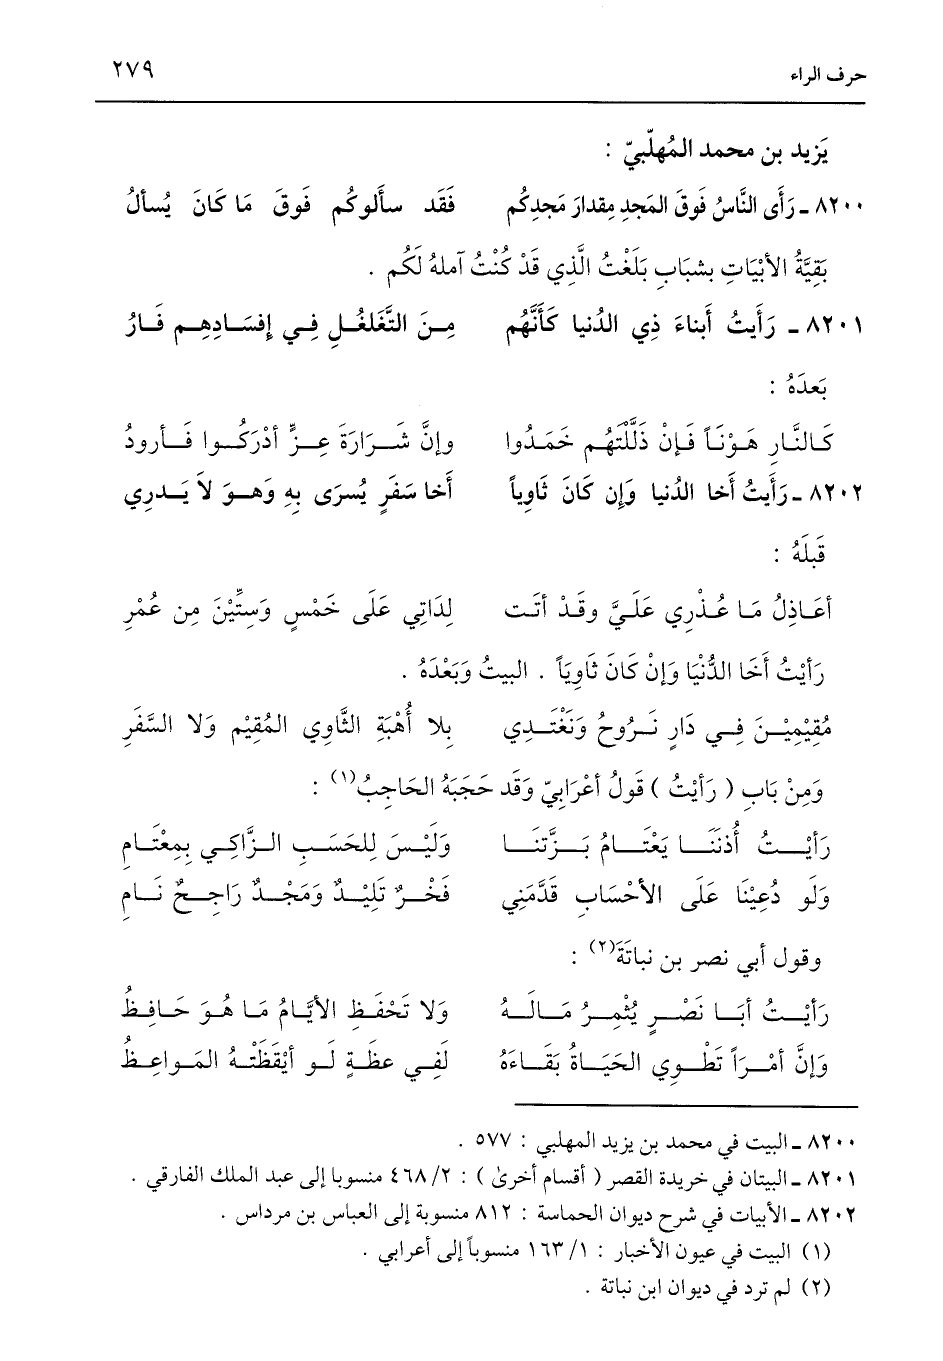 حرف الراء ٢٧٩
يَزيد بن محمد المُهلّبيّ :
٨٢٠٠ ـ رَأَى النَّاسُ فَوقَ المَجدِ مِقدارَ مَجدِكُم فَقَد سأَلوكُم فَوقَ مَا كَانَ يُسألُ
بَقِيَّةُ الأبْيَاتِ بشبَابِ بَلَغْتُ الَّذِي قَدْ كُنْتُ آملهُ لَكُم .
٨٢٠١ ـ رَأَيتُ أَبناءَ ذِي الدُنيا كَأَنَّهُم مِنَ التَّغَلغُلِ فِي إفسَادِهِم فَارُ
بَعدَهُ :
كَالنَّارِ هَوْنَاً فَإنْ ذَلَّلتَهُم خَمَدُوا وإنَّ شَرَارَةَ عِزٍّ أدْرَكُوا فَأرودُ
٨٢٠٢ ـ رَأَيتُ أخا الدُنيا وَإِن كَانَ ثَاوِياً أَخا سَفَرٍ يُسرَى بِهِ وَهوَ لاَ يَدرِي
قَبلَهُ :
أعَاذِلُ مَا عُذْرِي عَلَيَّ وقَدْ أتَت لِدَاتِي عَلَى خَمْسٍ وَستِّيْنَ مِن عُمْرِ
رَأيْتُ أخَا الدُّنْيَا وَإنْ كَانَ ثَاوِيَاً . البيتُ وَبَعْدَهُ .
مُقِيْمِيْنَ فِي دَارٍ نَرُوحُ وَنَغْتَدِي بِلا أُهْبَةِ الثَّاوِي المُقِيْمِ وَلا السَّفَرِ
وَمِنْ بَابِ ( رَأيْتُ ) قَولُ أعْرَابِيّ وَقَد حَجَبَهُ الحَاجِبُ(١) :
رَأيْتُ أُذنَنَا يَعْتَامُ بَزَّتنَا وَلَيْسَ لِلحَسَبِ الزَّاكِي بِمِعْتَامِ
وَلَو دُعِيْنَا عَلَى الأحْسَابِ قَدَّمَنِي فَخْرٌ تَلِيْدٌ وَمَجْدٌ رَاجِحٌ نَامِ
وقول أبي نصر بن نباتَةَ(٢) :
رَأيْتُ أبَا نَصْرٍ يُثْمِرُ مَالَهُ وَلا تَحْفَظِ الأيَّامُ مَا هُوَ حَافِظُ
وَإنَّ أمْرَاً تَطْوِي الحَيَاةُ بَقَاءَهُ لَفِي عظَةٍ لَو أيْقَظَتْهُ المَواعِظُ
٨٢٠٠ ـ البيت في محمد بن يزيد المهلبي : ٥٧٧ .
٨٢٠١ ـ البيتان في خريدة القصر ( أقسام أخرىٰ ) : ٤٦٨/٢ منسوبا إلى عبد الملك الفارقي .
٨٢٠٢ ـ الأبيات في شرح ديوان الحماسة : ٨١٢ منسوبة إلى العباس بن مرداس .
(١) البيت في عيون الأخبار : ١/ ١٦٣ منسوباً إلى أعرابي .
(٢) لم ترد في ديوان ابن نباتة .